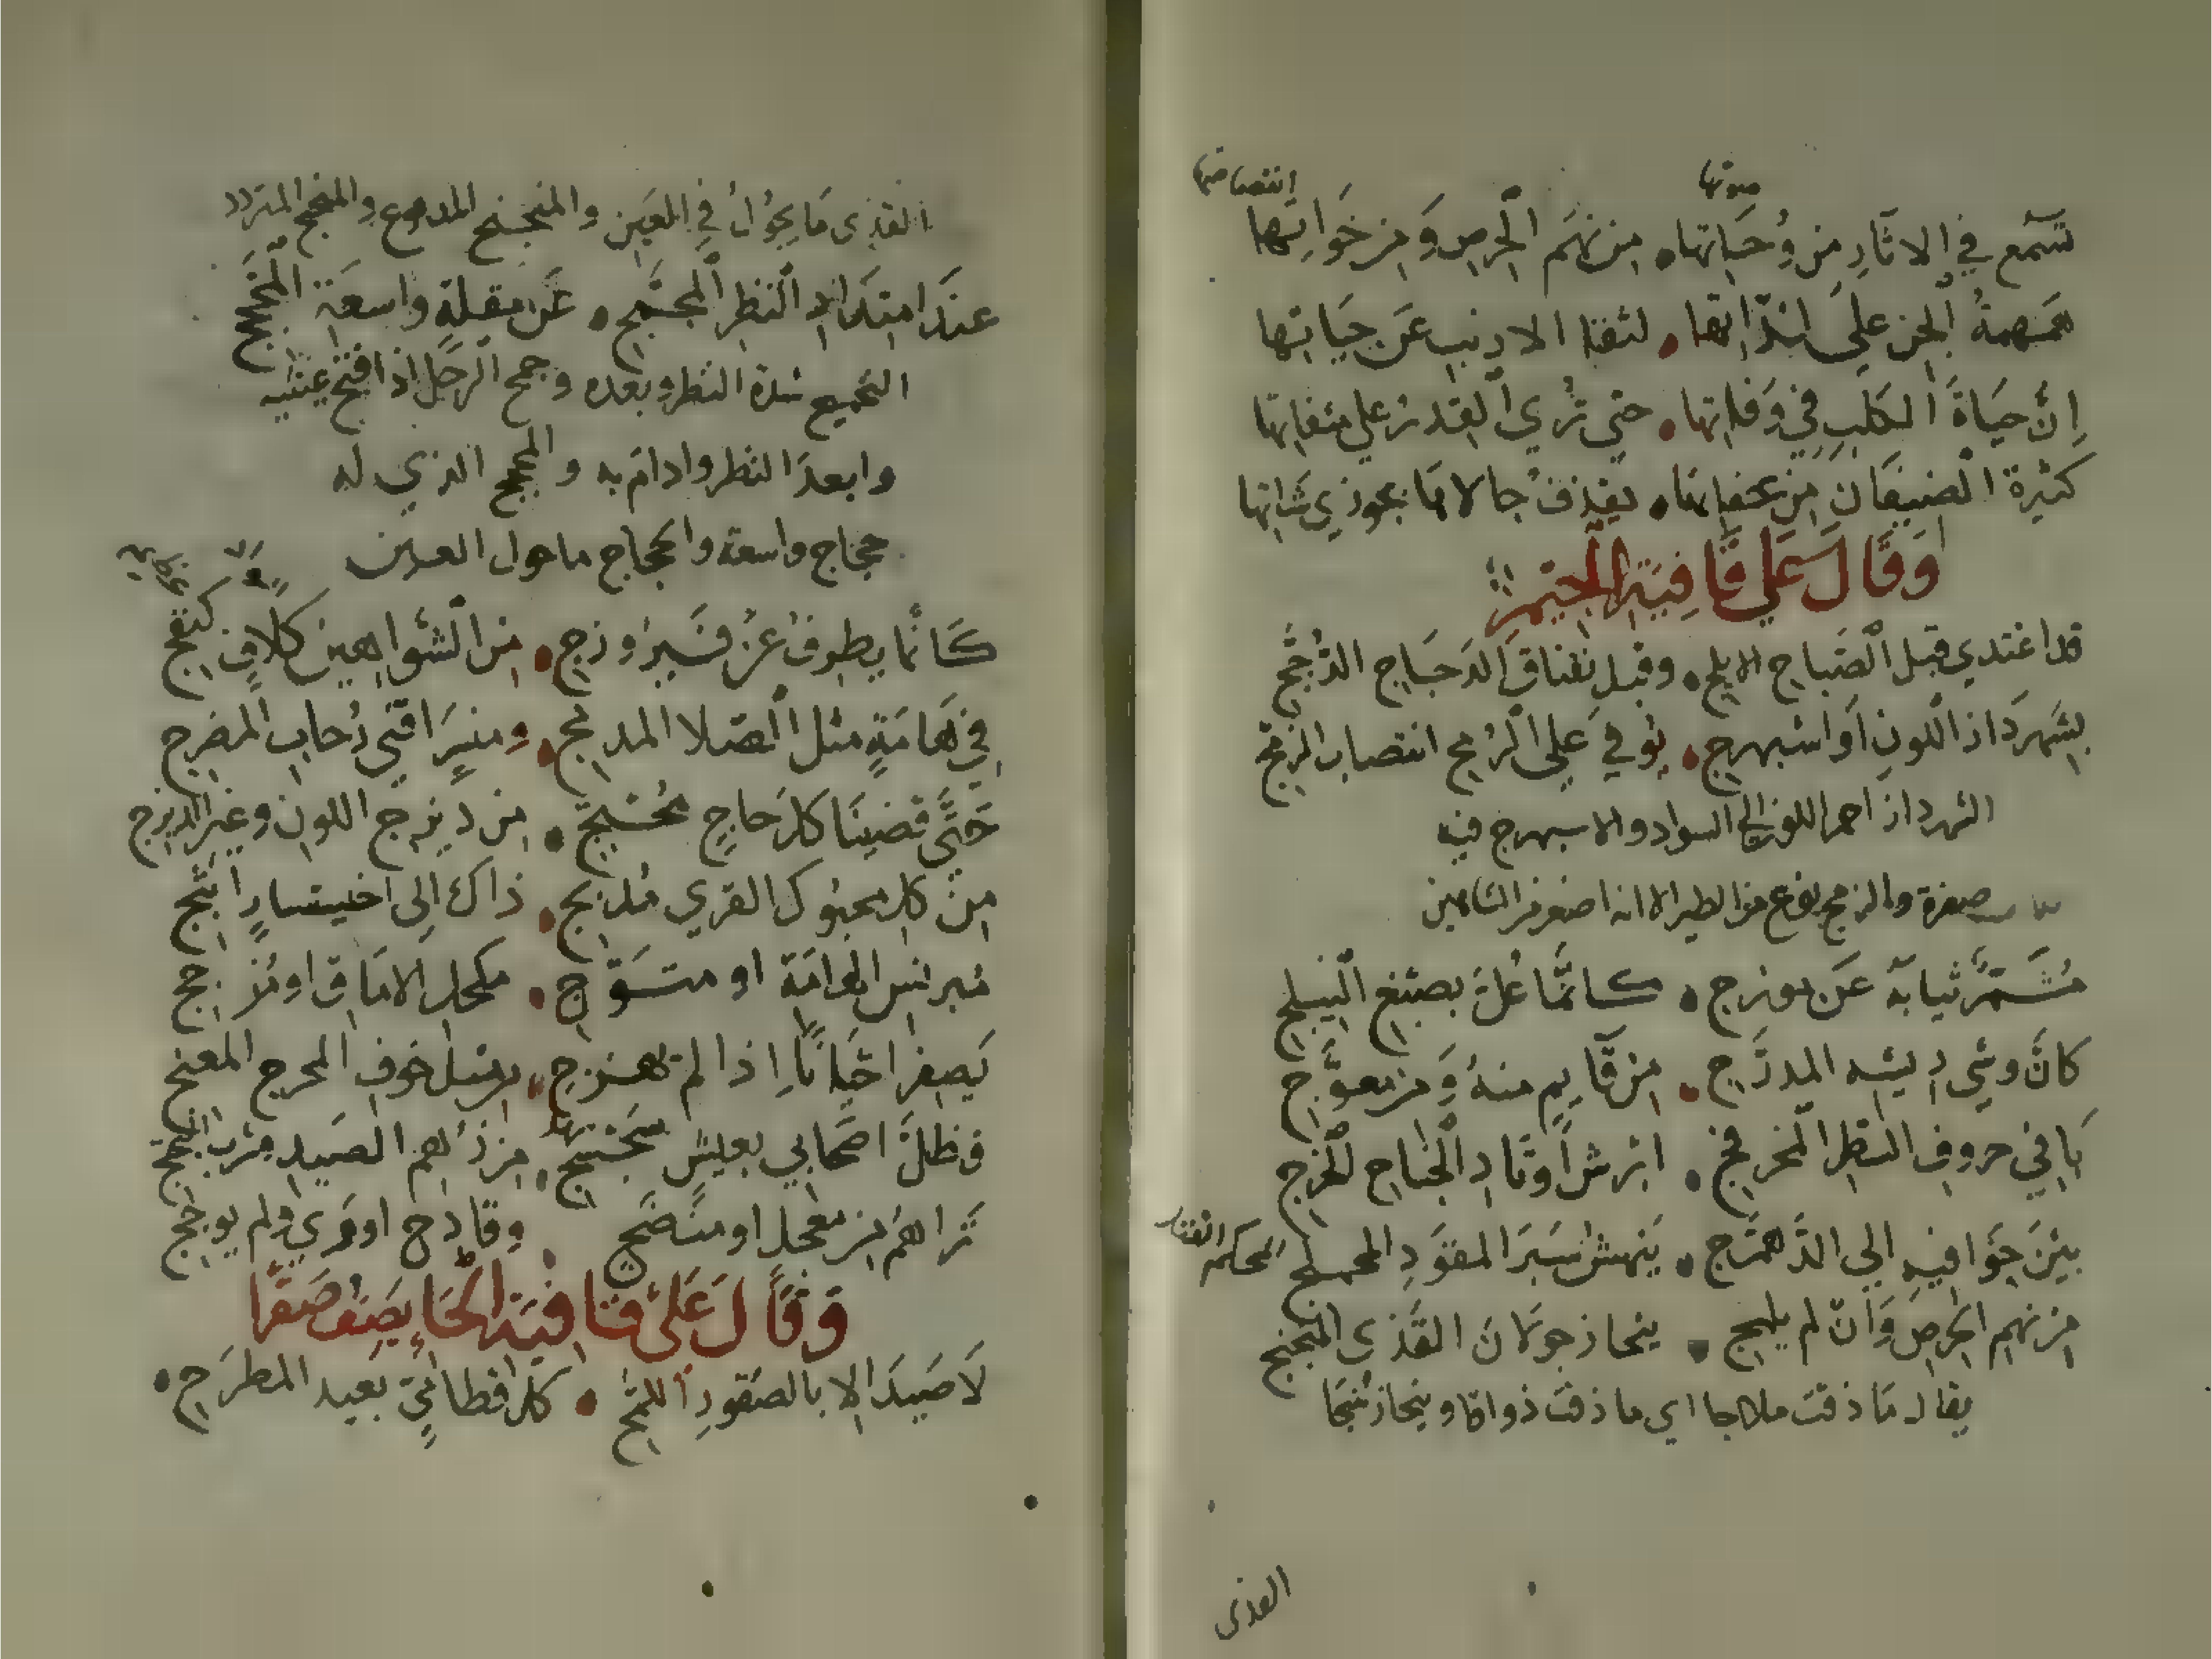 صوتها
انتصاصتها
تسمع في الاثار من وحاتها من نهم الحرص ومن خواتها
همهمة الجن على لذاتها لثقنا الارنب عن حياتها
إن حياة الكلب في وفاتها حتى ترى القدر على مثفاتها
كثيرة الضيفان من عفاتها يقذف جالاها بجوزي شاتها
وقال على قافية الجيم
قد اغتدي قبل الصباح الابلج وقبل نقناق الدجاج الدجج
بشهرداز اللون او اسبهرج يوفي على الرمح انتصاب الزمج
الشهرداز احمر اللون الى السواد والاسبهرج فيه
صفرة والزمج نوع من الطير الا انه اصغر من الشاهين
مشمر ثيابه عن موزج كانما عل بصبغ النيلج
كان وشي ريشه المدرج من قايم منه ومن معوج
باقي حروف السطر المخرفج ابرش اوتار الجناح الخرج
بين خوافيه الى الدهمرج ينهش سير المقود المحملج
المحكم الفتل
من نهم الحرص وان لم يلمج ينحاز جولان القذى المنجنج
يقال ما ذقت ملاجا اي ما ذقت ذواقا وينحاز
القذى
القذى ما يجول في العين والمنجنج المدموع والمنجج المتردد
عند امتداد النظر المجمج عن مقلة واسعة المحجج
التجميح شدة النظر وبعده وجمح الرجل اذا فتح عينيه
وابعد النظر وادام به والمحجج الذي له
حجاج واسعة والحجاج ماحول العين
كانما يطرف عن فيروزج من الشواهين كلون
في هامة مثل الصلا المدمج ومنسر اقنى رحاب المضرج
حتى قضينا كل حاج محتج من ديزج اللون وغير الديزج
من كل محبوك القرى مدمج ذاك الى
مبرنس الهامة او متوج مكحل الاماق او مزجج
يصفر احيانا اذا لم يهزج مثل خوف المحرج
فظل اصحابي بعيش سجسج من زهم الصيد
تراهم من معجل او منضج وقادح اورى ولم يوجج
وقال على قافية الحاء يصف صقرا
لا صيد الا بالصقور اللمح كل قطامي بعيد المطرح